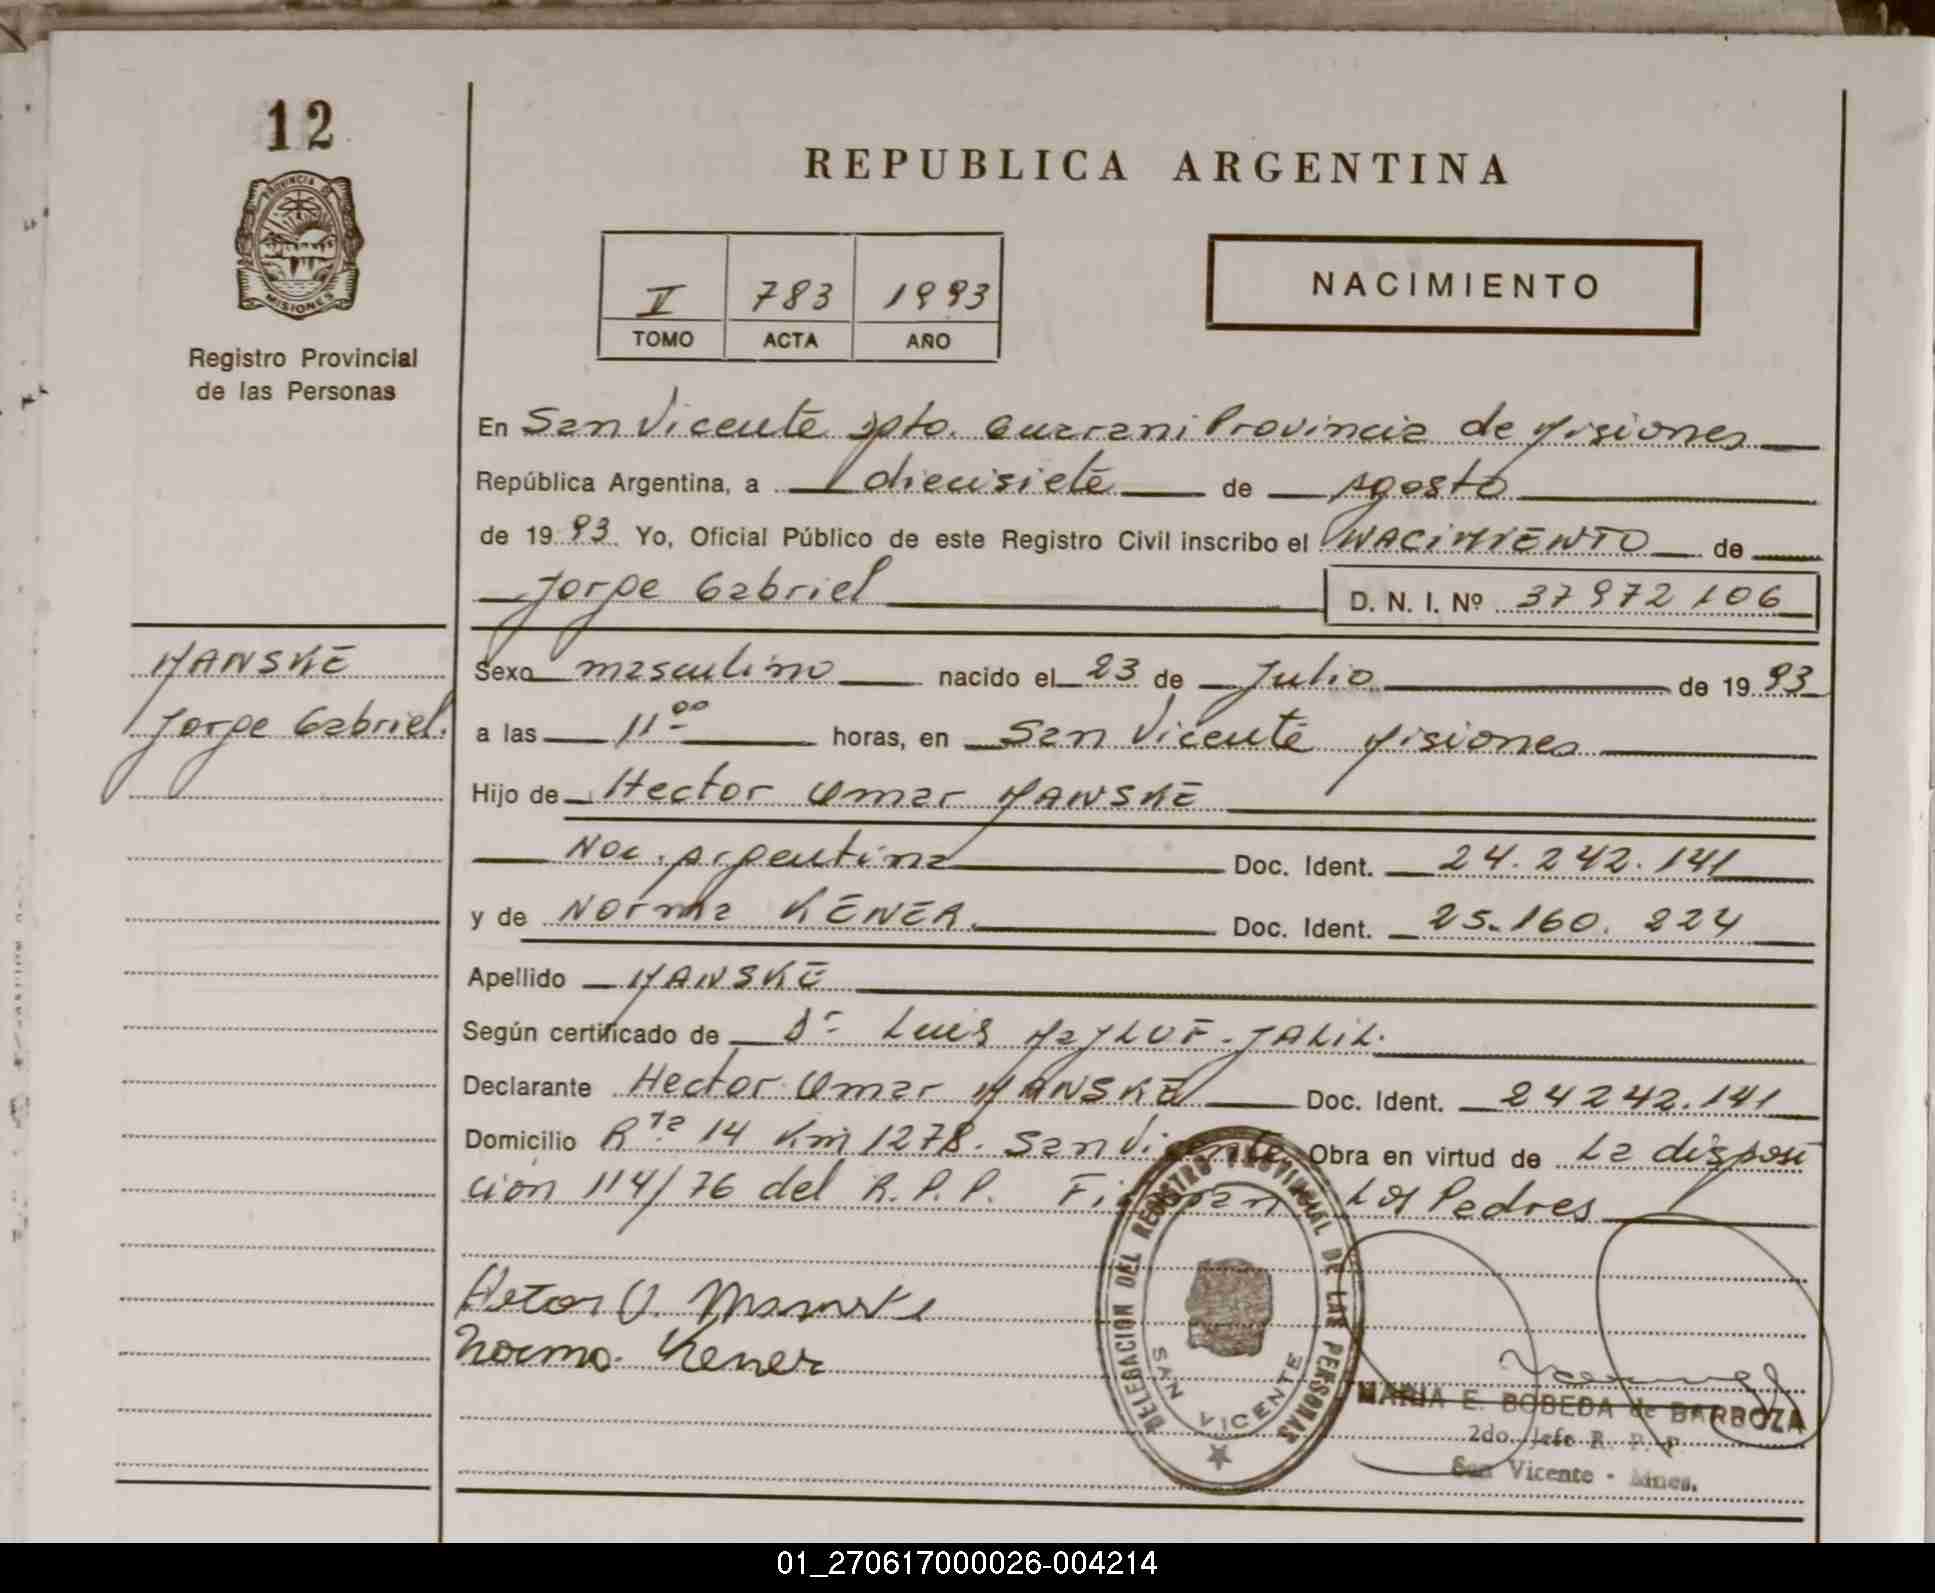 12
PROVINCIA DE
MISIONES
Registro Provincial
de las Personas
REPUBLICA ARGENTINA
783 1993
TOMO ACTA AÑO
NACIMIENTO
En San Vicente Dpto. Guarani Provincia de Misiones
República Argentina, a diecisiete de Agosto
de 1993. Yo, Oficial Público de este Registro Civil inscribo el NACIMIENTO de
Jorge Gabriel D. N. I. Nº 37972106
MANSKE
Jorge Gabriel.
Sexo masculino nacido el 23 de Julio de 1993
a las 11 00 horas, en San Vicente Misiones
Hijo de Hector Omar MANSKE
Nac. Argentina Doc. Ident. 24.242.141
y de Norma KENER. Doc. Ident. 25.160.224
Apellido MANSKE
Según certificado de Dr Luis MAJLUF-JALIL.
Declarante Hector Omar MANSKE Doc. Ident. 24242.141
Domicilio Rta 14 Km 1278. San Vicente Obra en virtud de La disposi
cion 114/76 del R.P.P. Firman Los Padres
Hetor O. Manske
Norma Kener
DELEGACION DEL REGISTRO PROVINCIAL DE LAS PERSONAS
SAN VICENTE
MARIA E. BOBEDA de BARBOZA
2do. Jefe R. P. P.
San Vicente - Mnes.
01_270617000026-004214